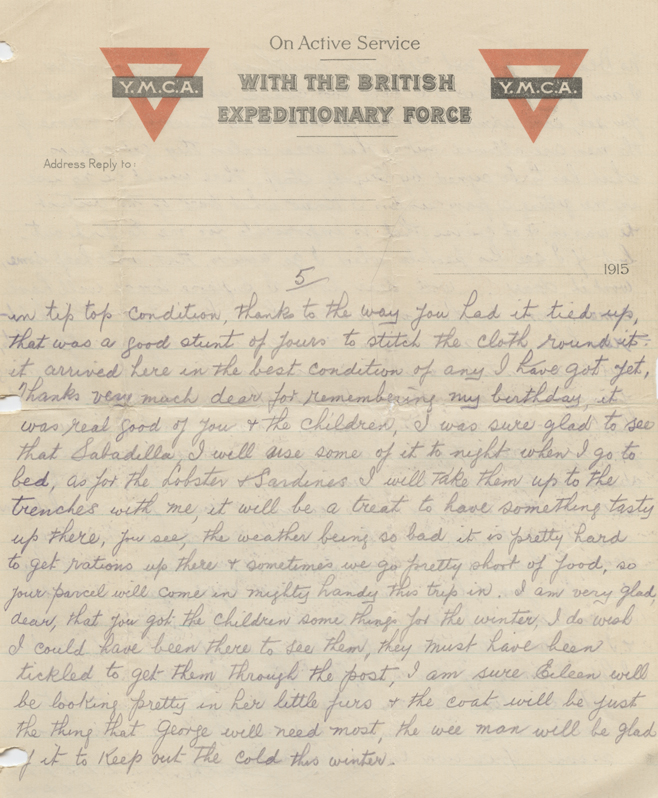 On Active Service
Y.M.C.A. WITH THE BRITISH Y.M.C.A.
EXPEDITIONARY FORCE
Address Reply to:
1915
5
in tip top condition, thanks to the way you had it tied up,
that was a good stunt of yours to stitch the cloth round it.
it arrived here in the best condition of any I have got yet,
Thanks very much dear for remembering my birthday, it
was real good of you & the children, I was sure glad to see
that Sabadilla, I will use some of it to night when I go to
bed, as for the Lobster & Sardines I will take them up to the
trenches with me, it will be a treat to have something tasty
up there, you see, the weather being so bad it is pretty hard
to get rations up there & sometimes we go pretty short of food, so
your parcel will come in mighty handy this trip in. I am very glad,
dear, that you got the children some things for the winter, I do wish
I could have been there to see them, they must have been
tickled to get them through the post, I am sure Eileen will
be looking pretty in her little furs & the coat will be just
the thing that George will need most, the wee man will be glad
of it to keep out the cold this winter.